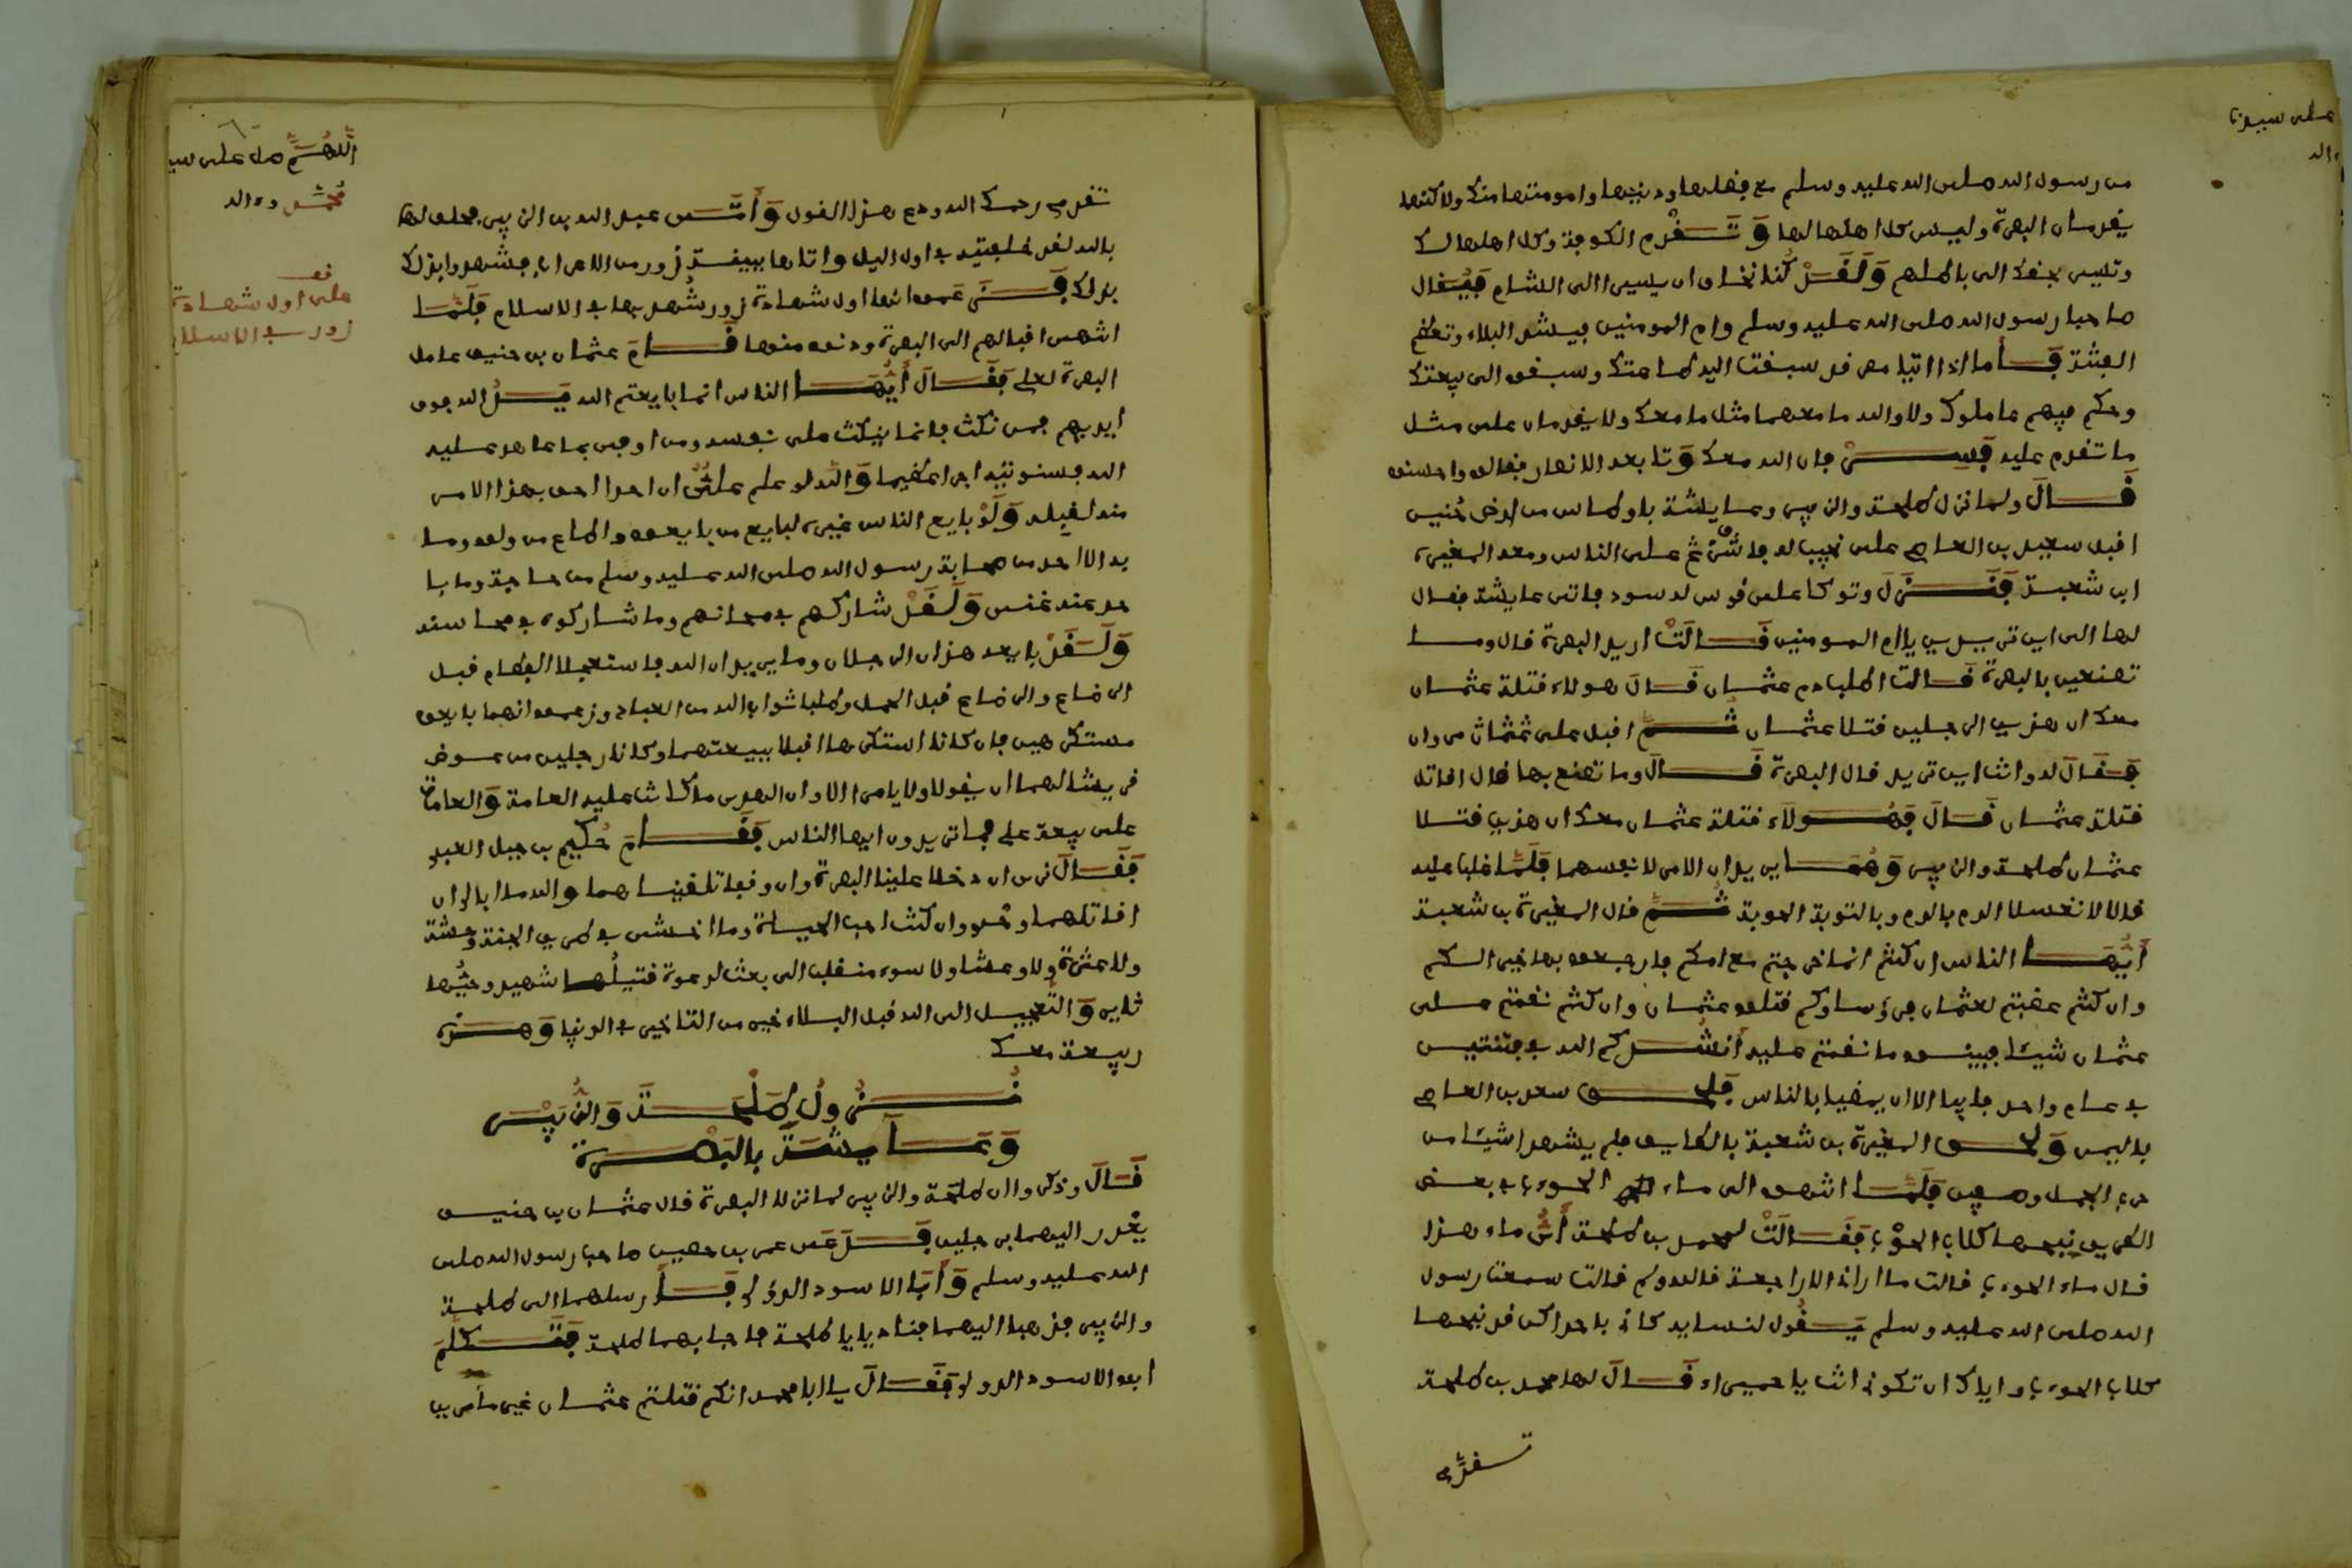 على سيدنا
واله
من رسول الله صلى الله عليه وسلم مع فضلها ودينها وامومتها منك ولاكنهما
يقدمان البصرة وليس كل اهلها لهما وتقدم الكوفة وكل اهلها لك
وتسير بحقك الى باطلهم ولقد كنا نخاف ان يسيرا الى الشام فيقال
صاحبا رسول الله صلى الله عليه وسلم وام المومنين فيشتد البلاء وتعظم
الفتنة فاما اذا اتيا مصر قد سبقت اليه طاعتك وسبقوا الى بيعتك
وحكم فيهم عاملوك ولا والله ما معهما مثل ما معك ولا يقدمان على مثل
ما تقدم عليه فسر فان الله معك وتابعه الانصار فقالوا واحسنوا
قال ولما نزل طلحة والزبير وعايشة باوطاس من ارض خيبر
اقبل سعيد بن العاص على نجيب له فاشرف على الناس ومعه المغيرة
ابن شعبة فنزل وتوكا على قوس له سود فاتى عايشة فقال
لها الى اين تريدين يا ام المومنين قالت اريد البصرة قال وما
تصنعين بالبصرة قالت اطلب دم عثمان قال هولاء قتلة عثمان
معك ان هذين الرجلين قتلا عثمان ثم اقبل على مروان
فقال له وانت اين تريد قال البصرة قال وما تصنع بها قال اقاتل
قتلة عثمان قال فهولاء قتلة عثمان معك ان هذين قتلا
عثمان طلحة والزبير وهما يريدان الامر لانفسهما فلما غلبا عليه
قالا لا نغسل الدم بالدم وبالتوبة الحوبة ثم قال المغيرة بن شعبة
ايها الناس ان كنتم انما خرجتم مع امكم فارجعوا بها خير لكم
وان كنتم غضبتم لعثمان فرؤساوكم قتلوا عثمان وان كنتم نقمتم على
عثمان شيئا فبينوا ما نقمتم عليه انشدكم الله في فتنتين
في عام واحد فابيا الا ان يمضيا بالناس فلحق سعد بن العاص
باليمن ولحق المغيرة بن شعبة بالطايف فلم يشهدا شيئا من
حرب الجمل وصفين فلما انتهوا الى ماء الحوءب في بعض
الطريق نبحها كلاب الحوءب فقالت لمحمد بن طلحة اي ماء هذا
قال ماء الحوءب قالت ما اراني الا راجعة قال ولم قالت سمعت رسول
الله صلى الله عليه وسلم يقول لنسايه كاني باحداكن قد نبحها
كلاب الحوءب واياك ان تكوني انت يا حميراء قال لها محمد بن طلحة
تقدمي
اللهم صل على سيد
محمد وءاله
قف
على اول شهادة
زور في الاسلام
تقدمي رحمك الله ودع هذا القول واتى عبد الله بن الزبير فحلف لها
بالله لقد خلفتيه في اول اليل واتاها ببينة زور من الاعراب فشهدوا بذلك
بذلك فزعموا انها اول شهادة زور شهد بها في الاسلام فلما
انتهى اقبالهم الى البصرة ودنوا منها قام عثمان بن حنيف عامل
البصرة لعلي فقال ايها الناس انما بايعتم الله يد الله فوق
ايديهم فمن نكث فانما ينكث على نفسه ومن اوفى بما عاهد عليه
الله فسنوتيه اجرا عظيما والله لو علم علي ان احدا احق بهذا الامر
منه لقبله ولو بايع الناس غيره لبايع من بايعوا واطاع من ولوا وما
به الا احد من صحابة رسول الله صلى الله عليه وسلم من حاجة وما با
حد عنه غنى ولقد شاركهم في محاسنهم وما شاركوه في محاسنه
ولقد بايعه هذان الرجلان وما يريدان الله فاستعجلا الفطام قبل
الرضاع والرضاع قبل الحمل وطلبا ثواب الله من العباد وزعموا انهما بايعا
مستكرهين فان كانا استكرها قبل بيعتهما وكانا رجلين من عرض
قريش لهما ان يقولا ولا يامرا الا وان الهدى ما كانت عليه العامة والعامة
على بيعة علي فما ترون ايها الناس فقام حكيم بن جبل العبدي
فقال نرى ان دخلا علينا البصرة وان وقفا تلقيناهما والله ما ابالي ان
اقاتلهما وحدي وان كنت احب الحياة وما اخشى في طريق الجنة وحشة
ولا عثرة ولا غشا ولا سوء منقلب الى بعث لدعوة قتيلها شهيد وحيها
ثاير والتعجيل الى الله قبل البلاء خير من التاخير في الدنيا وهذه
ربيعة معك
نزول طلحة والزبير
وعايشة بالبصرة
قال وذكروا ان طلحة والزبير لما نزلا البصرة قال عثمان بن حنيف
يعذر اليهما برجلين فدعى عمران بن حصين صاحب رسول الله صلى
الله عليه وسلم وابا الاسود الدؤلي فارسلهما الى طلحة
والزبير فذهبا اليهما فنادى يا طلحة فاجابهما طلحة فتكلم
ابو الاسود الدولي فقال يا ابا محمد انكم قتلتم عثمان غير مامورين